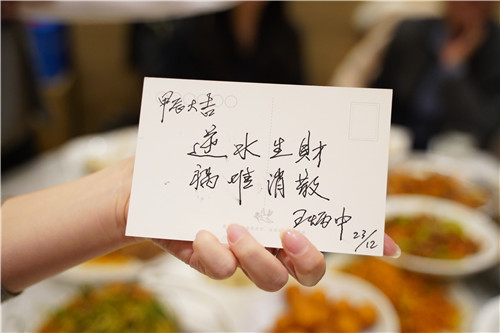 甲辰大吉
逆水生財
祸难消散
王炳中
23/12